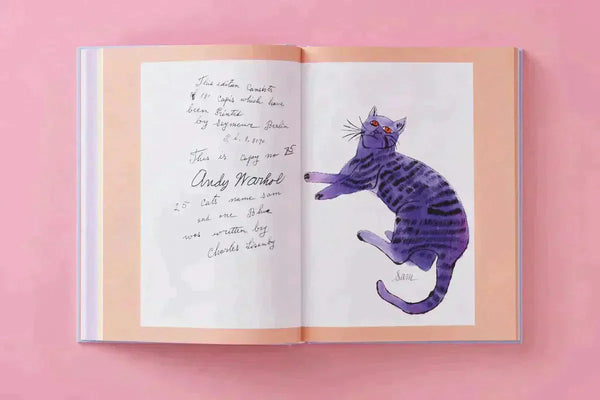 This edition consists
of 190 copis which have
been Printed
by Seymour Berlin
This is copy no 75
Andy Warhol
25 cats name sam
and one Blue
was written by
Charles Lisanby
Sam